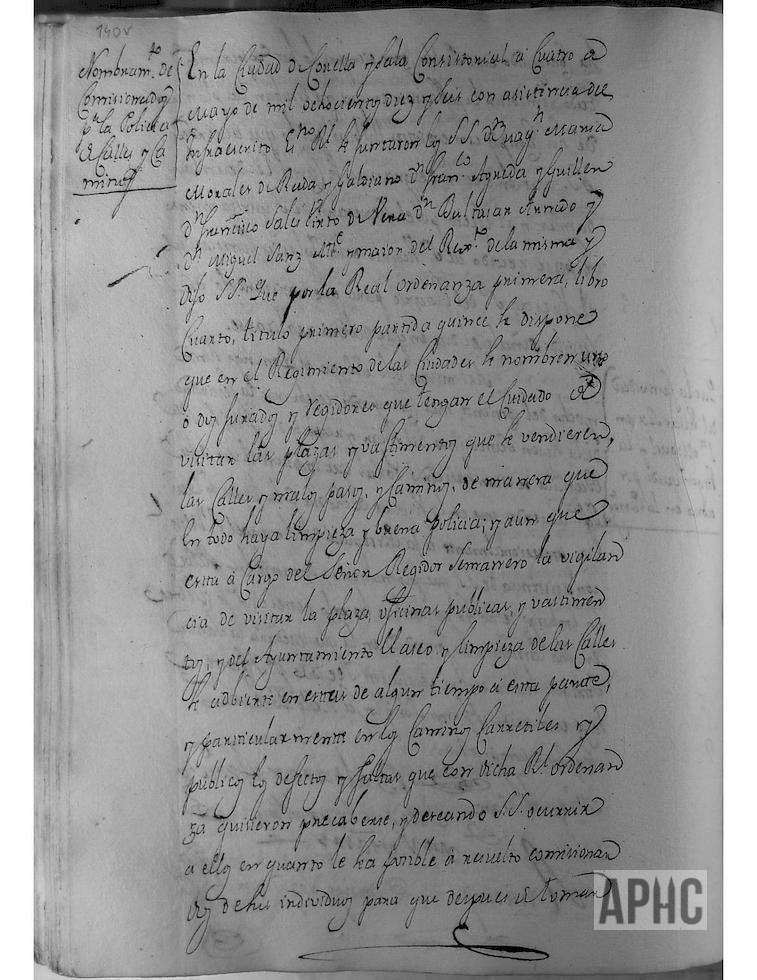 140v
Nombram.to de
Comisionados
p.a la Policia
de Calles y Ca
minos
En la Ciudad de Corella y Sala Consistorial a Cuatro de
Mayo de mil ochocientos diez y seis con asistencia del
Infraescrito Es.no R.l se juntaron los S.S. D.n Joaq.n Maria
Morales de Rada y Galdiano D.n Fran.co Agreda y Guillen
D.n Francisco Sales Virto de Vera D.n Baltasar Arnedo y
D.n Miguel Sanz y maior del Rex.to de la misma y
Dijo S.S. que por la Real ordenanza primera, libro
Cuarto, titulo primero partida quince se dispone
que en el Regimiento de las Ciudades se nombren uno
o dos jurados y regidores que tengan el Cuidado de
visitar las plazas y vastimentos que se vendieren,
las Calles y malos pasos, y Caminos, de manera que
en todo haya limpieza y buena policia; y aun que
esta a Cargo del Señor Regidor Semanero la vigilan
cia de visitar la plaza, oficinas publicas, y vastimen
tos, y del Ayuntamiento el aseo y limpieza de las Calles
se adbierte en estas de algun tiempo a esta parte,
y particularmente en los Caminos Carretiles y
publicos los defectos y faltas que con dicha R.l ordenan
za quisieron precaberse, y deseando S.S. ocurrir
a ellos en quanto le ha posible a resuelto comisionar
dos de sus individuos para que despues de tomar
APHC